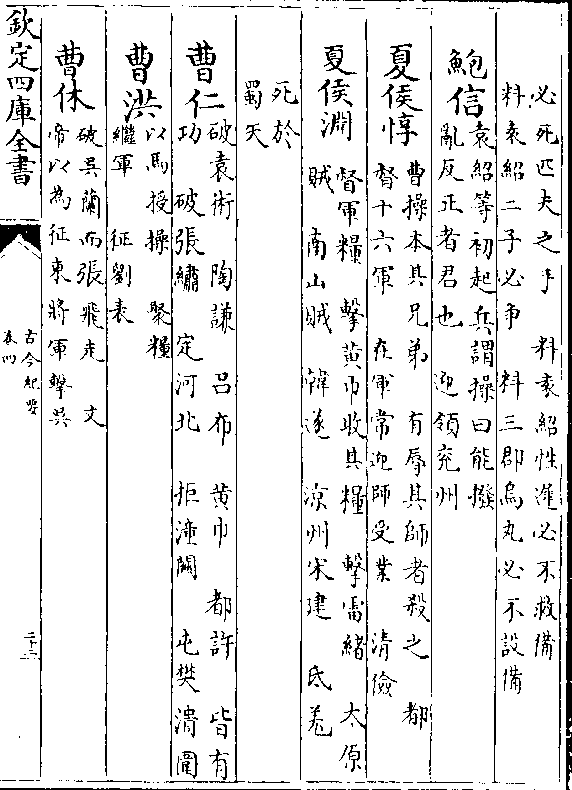 必死匹夫之手　料袁紹性遲必不救備
料袁紹二子必爭　料三郡烏丸必不設備
鮑信
袁紹等初起兵謂操曰能撥
亂反正者君也　迎領兖州
夏侯惇
曹操本其兄弟　有辱其師者殺之　都
督十六軍　在軍常迎師受業　清儉
夏侯淵
督軍糧　擊黄巾收其糧　擊雷緒　太原
賊　南山賊　韓遂　涼州宋建　氐羌
死於
蜀天
曹仁
破袁術　陶謙　呂布　黄巾　都許　皆有
功　破張繡　定河北　拒潼關　屯樊　潰圍
曹洪
以馬授操　聚糧
繼軍　征劉表
曹休
破吳蘭而張飛走　文
帝以為征東將軍擊吳
欽定四庫全書
古今紀要
卷四
二十三